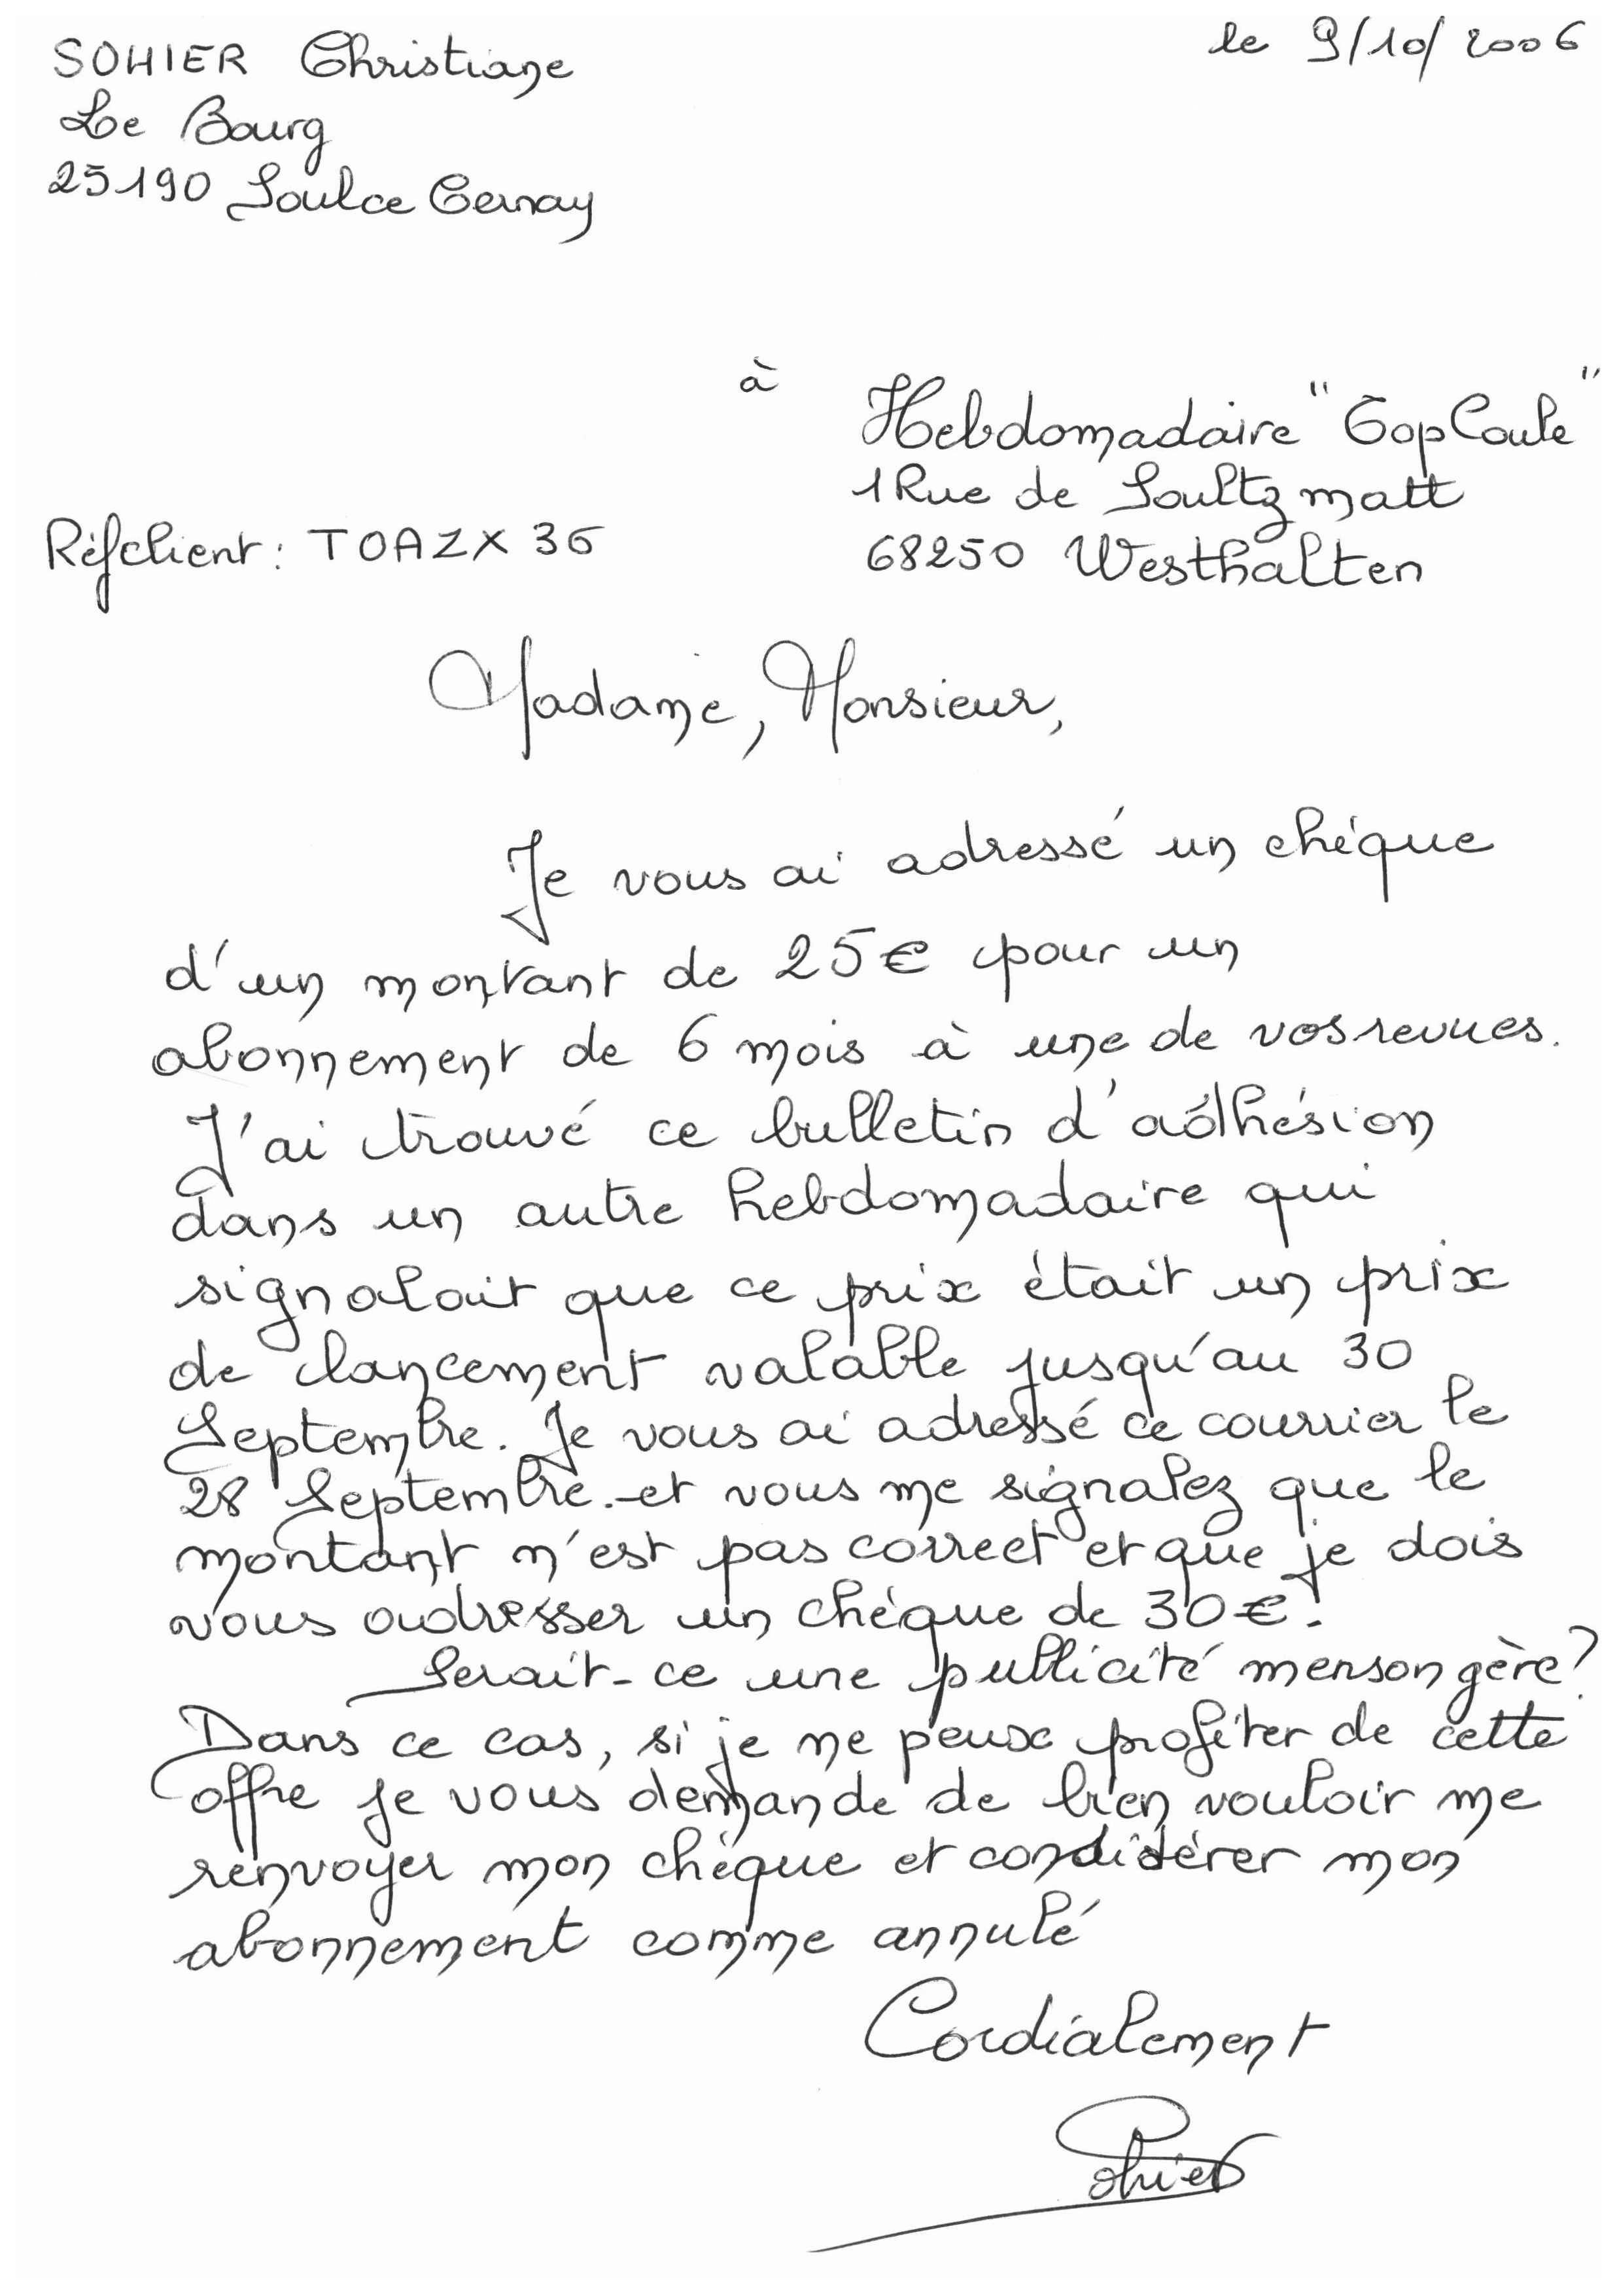 SOHIER Christiane
le 9/10/2006
Le Bourg
25190 Soulce Cernay
à
Hebdomadaire "Top Coule"
1 Rue de Soultzmatt
Réf client : TOAZX 36
68250 Westhalten
Madame, Monsieur,
Je vous ai adressé un chéque
d'un montant de 25€ pour un
abonnement de 6 mois à une de vos revues.
J'ai trouvé ce bulletin d'adhésion
dans un autre hebdomadaire qui
signalait que ce prix était un prix
de lancement valable jusqu'au 30
Septembre. Je vous ai adressé ce courrier le
28 Septembre. et vous me signalez que le
montant n'est pas correct et que je dois
vous adresser un chéque de 30€!
Serait-ce une publicité mensongère?
Dans ce cas, si je ne peux profiter de cette
offre je vous demande de bien vouloir me
renvoyer mon chéque et considérer mon
abonnement comme annulé
Cordialement
Sohier